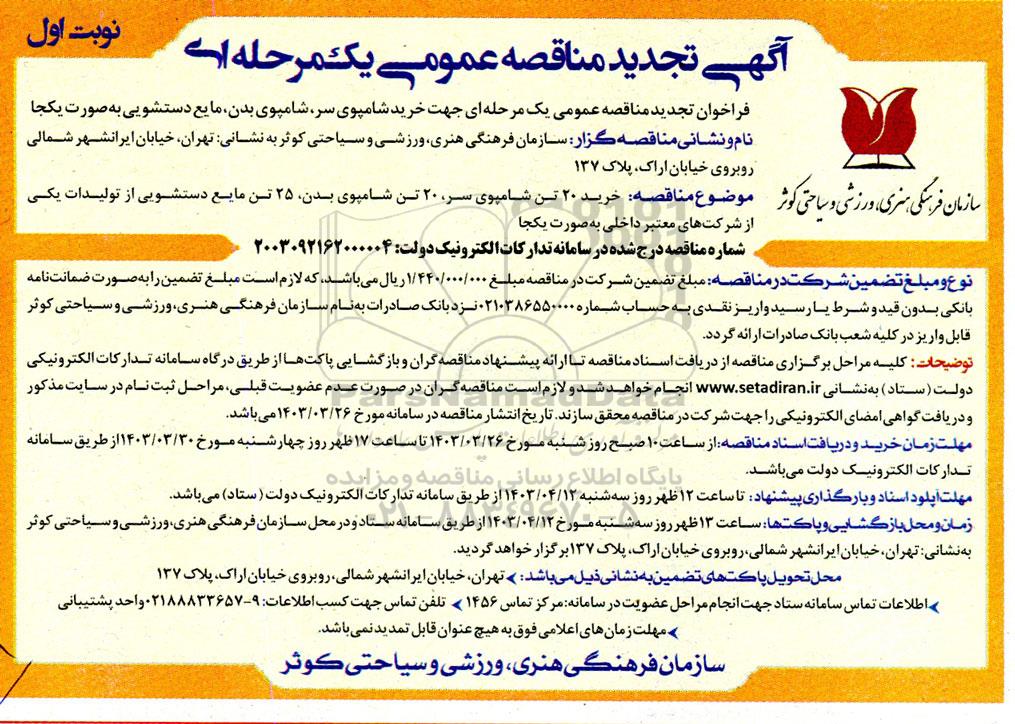 نوبت اول
آگهی تجدید مناقصه عمومی یک مرحله ای
فراخوان تجدید مناقصه عمومی یک مرحله ای جهت خرید شامپوی سر، شامپوی بدن، مایع دستشویی به صورت یکجا
نام و نشانی مناقصه گزار: سازمان فرهنگی هنری، ورزشی و سیاحتی کوثر به نشانی: تهران، خیابان ایرانشهر شمالی
روبروی خیابان اراک، پلاک ۱۳۷
موضوع مناقصه: خرید ۲۰ تن شامپوی سر، ۲۰ تن شامپوی بدن، ۲۵ تن مایع دستشویی از تولیدات یکی
از شرکت های معتبر داخلی به صورت یکجا
سازمان فرهنگی هنری، ورزشی و سیاحتی کوثر
شماره مناقصه درج شده در سامانه تدارکات الکترونیک دولت: ۲۰۰۳۰۹۲۱۶۲۰۰۰۰۰۴
نوع و مبلغ تضمین شرکت در مناقصه: مبلغ تضمین شرکت در مناقصه مبلغ ۱/۴۴۰/۰۰۰/۰۰۰ ریال می باشد، که لازم است مبلغ تضمین را به صورت ضمانت نامه
بانکی بدون قید و شرط یا رسید واریز نقدی به حساب شماره ۰۲۱۰۳۸۶۵۵۰۰۰۰ نزد بانک صادرات به نام سازمان فرهنگی هنری، ورزشی و سیاحتی کوثر
قابل واریز در کلیه شعب بانک صادرات ارائه گردد.
توضیحات: کلیه مراحل برگزاری مناقصه از دریافت اسناد مناقصه تا ارائه پیشنهاد مناقصه گران و بازگشایی پاکت ها از طریق درگاه سامانه تدارکات الکترونیکی
دولت (ستاد) به نشانی www.setadiran.ir انجام خواهد شد و لازم است مناقصه گران در صورت عدم عضویت قبلی، مراحل ثبت نام در سایت مذکور
و دریافت گواهی امضای الکترونیکی را جهت شرکت در مناقصه محقق سازند. تاریخ انتشار مناقصه در سامانه مورخ ۱۴۰۳/۰۳/۲۶ می باشد.
مهلت زمان خرید و دریافت اسناد مناقصه: از ساعت ۱۰ صبح روز شنبه مورخ ۱۴۰۳/۰۳/۲۶ تا ساعت ۱۷ ظهر روز چهارشنبه مورخ ۱۴۰۳/۰۳/۳۰ از طریق سامانه
تدارکات الکترونیک دولت می باشد.
مهلت آپلود اسناد و بارگذاری پیشنهاد: تا ساعت ۱۲ ظهر روز سه شنبه ۱۴۰۳/۰۴/۱۲ از طریق سامانه تدارکات الکترونیک دولت (ستاد) می باشد.
زمان و محل بازگشایی و پاکت ها: ساعت ۱۳ ظهر روز سه شنبه مورخ ۱۴۰۳/۰۴/۱۲ از طریق سامانه ستاد و در محل سازمان فرهنگی هنری، ورزشی و سیاحتی کوثر
به نشانی: تهران، خیابان ایرانشهر شمالی، روبروی خیابان اراک، پلاک ۱۳۷ برگزار خواهد گردید.
محل تحویل پاکت های تضمین به نشانی ذیل می باشد: تهران، خیابان ایرانشهر شمالی، روبروی خیابان اراک، پلاک ۱۳۷
اطلاعات تماس سامانه ستاد جهت انجام مراحل عضویت در سامانه: مرکز تماس ۱۴۵۶ تلفن تماس جهت کسب اطلاعات: ۹-۰۲۱۸۸۸۳۳۶۵۷ واحد پشتیبانی
مهلت زمان های اعلامی فوق به هیچ عنوان قابل تمدید نمی باشد.
سازمان فرهنگی هنری، ورزشی و سیاحتی کوثر
ParsNamadData
پایگاه اطلاع رسانی مناقصه و مزایده
۰۲۱-۸۸۳۴۹۶۷۰-۵